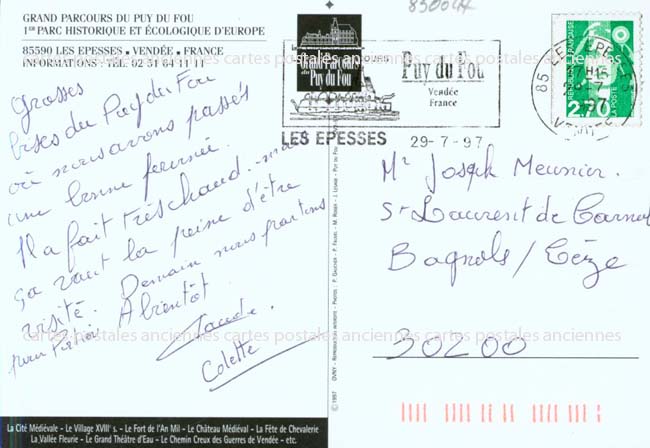 GRAND PARCOURS DU PUY DU FOU
1ER PARC HISTORIQUE ET ÉCOLOGIQUE D'EUROPE
85590 LES EPESSES - VENDÉE - FRANCE
INFORMATIONS : TÉL. 02 51 64 11 11
Grosses
bises du Puy du Fou
où nous avons passés
une bonne journée.
Il a fait très chaud
ça vaut la peine d'être
visité. Demain nous partons
pour A bientôt
Claude
Colette
La Cité Médiévale - Le Village XVIIIe s. - Le Fort de l'An Mil - Le Château Médiéval - La Fête de Chevalerie
La Vallée Fleurie - Le Grand Théâtre d'Eau - Le Chemin Creux des Guerres de Vendée - etc.
Grand Parcours
du Puy du Fou
Puy du Fou
Vendée
France
LES EPESSES
29-7-97
RÉPUBLIQUE FRANÇAISE
2,70
LA POSTE
Mr Joseph Meunier.
St Laurent de Carnols
Bagnols / Cèze
30200
cartes postales anciennes cartes postales anciennes cartes postales anciennes
cartes postales anciennes cartes postales anciennes cartes postales anciennes